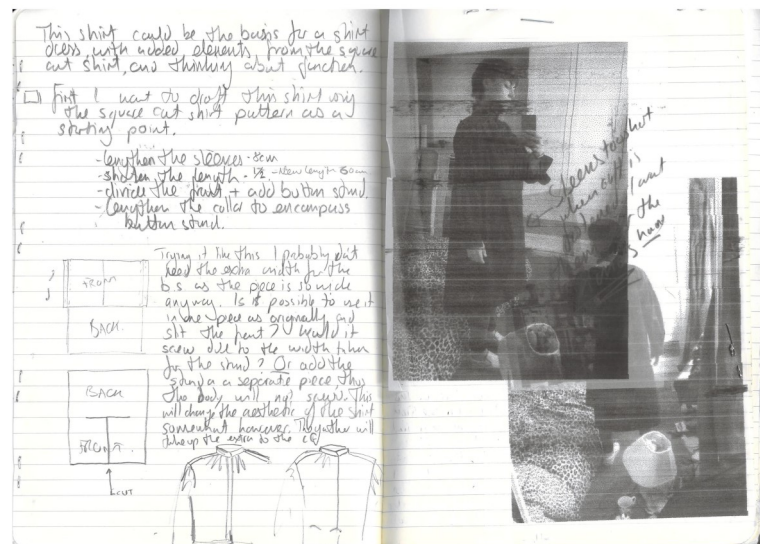 This shirt could be the basis for a shirt
dress, with added elements from the square
cut shirt, and thinking about function.
First I want to draft this shirt using
the square cut shirt pattern as a
starting point.
- lengthen the sleeves - 8cm
- shorten the length - 1/2 - New length 80cm
- divide the front + add button stand.
- lengthen the collar to encompass
button stand.
Trying it like this I probably don't
need the extra width for the
b.s. as the piece is so wide
anyway. Is it possible to use it
in one piece as originally and
slit the front? Would it
skew due to the width taken
for the stand? Or add the
stand a separate piece thus
the body will not skew. This
will change the aesthetic of the shirt
somewhat however. The gather will
take up the extra to the
FRONT
BACK
BACK
FRONT
CUT
Sleeves too short
when cuff is
I want
the